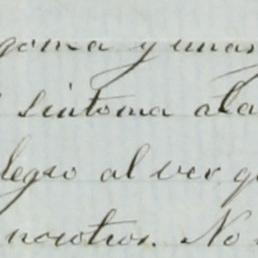 goma y unas
sintoma ala
legro al ver q
nosotros. No